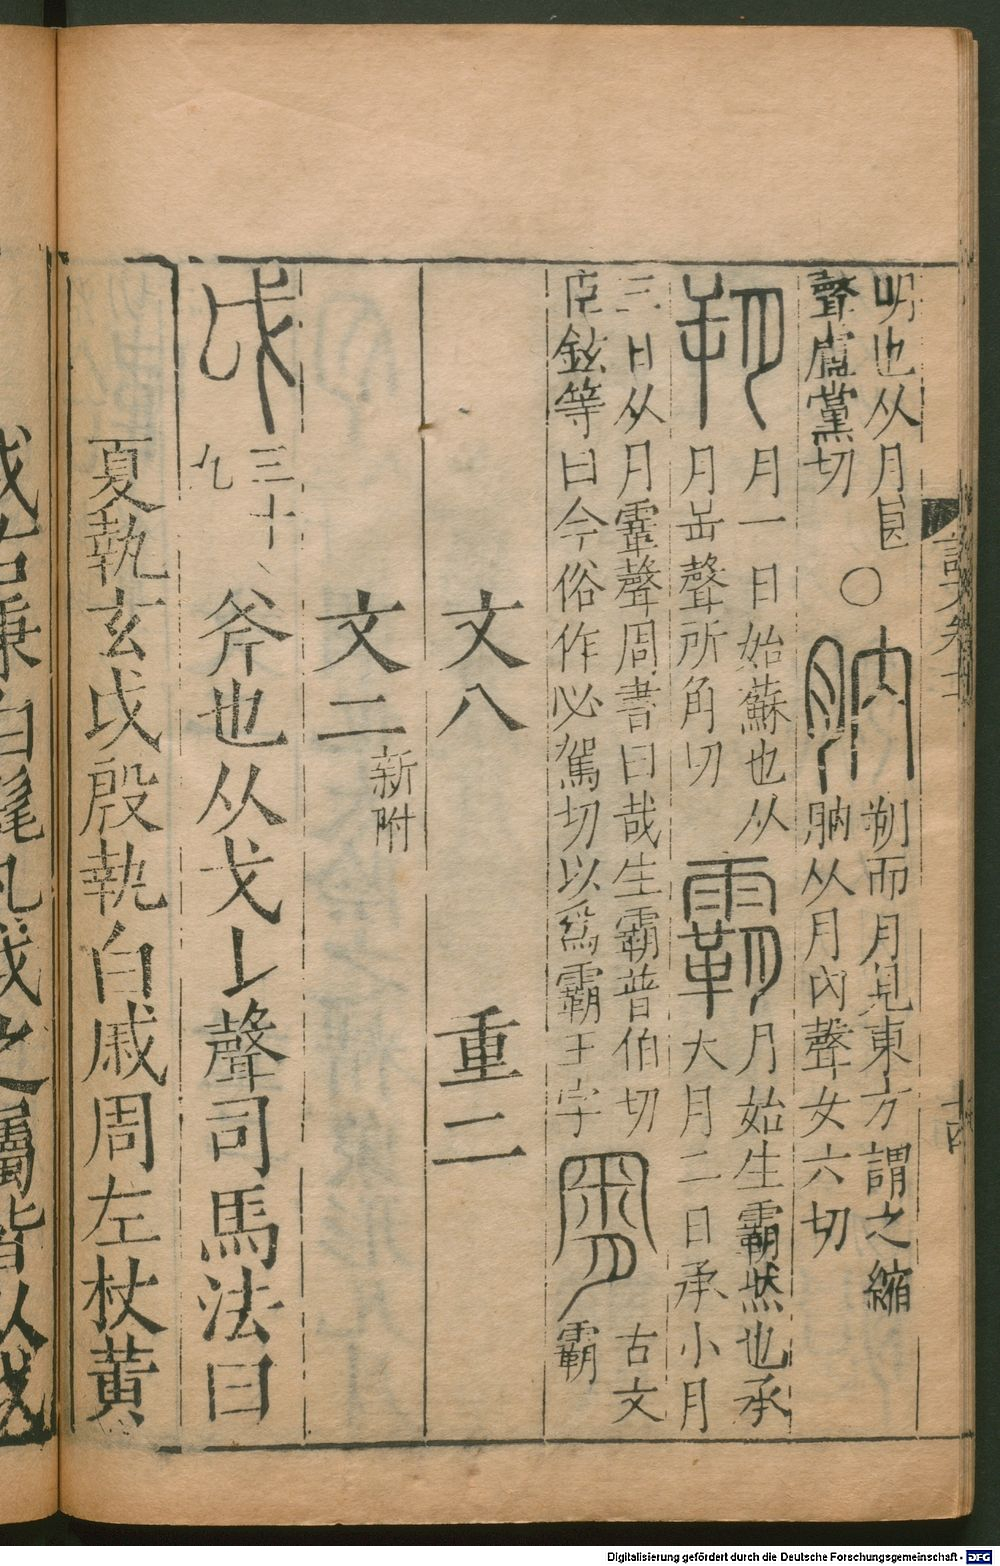 明也从月㫐
聲盧黨切
○
肭
朔而月見東方謂之縮
肭从月內聲女六切
朔
月一日始蘇也从
月屰聲所角切
霸
月始生霸然也承
大月二日承小月
三日从月䨣聲周書曰哉生霸普伯切
臣鉉等曰今俗作必駕切以爲霸王字
古文
霸
文八 重二
文二
新附
戉
三十
九
斧也从戈𠄌聲司馬法曰
夏執玄戉殷執白戚周左杖黃
十四
Digitalisierung gefördert durch die Deutsche Forschungsgemeinschaft - DFG